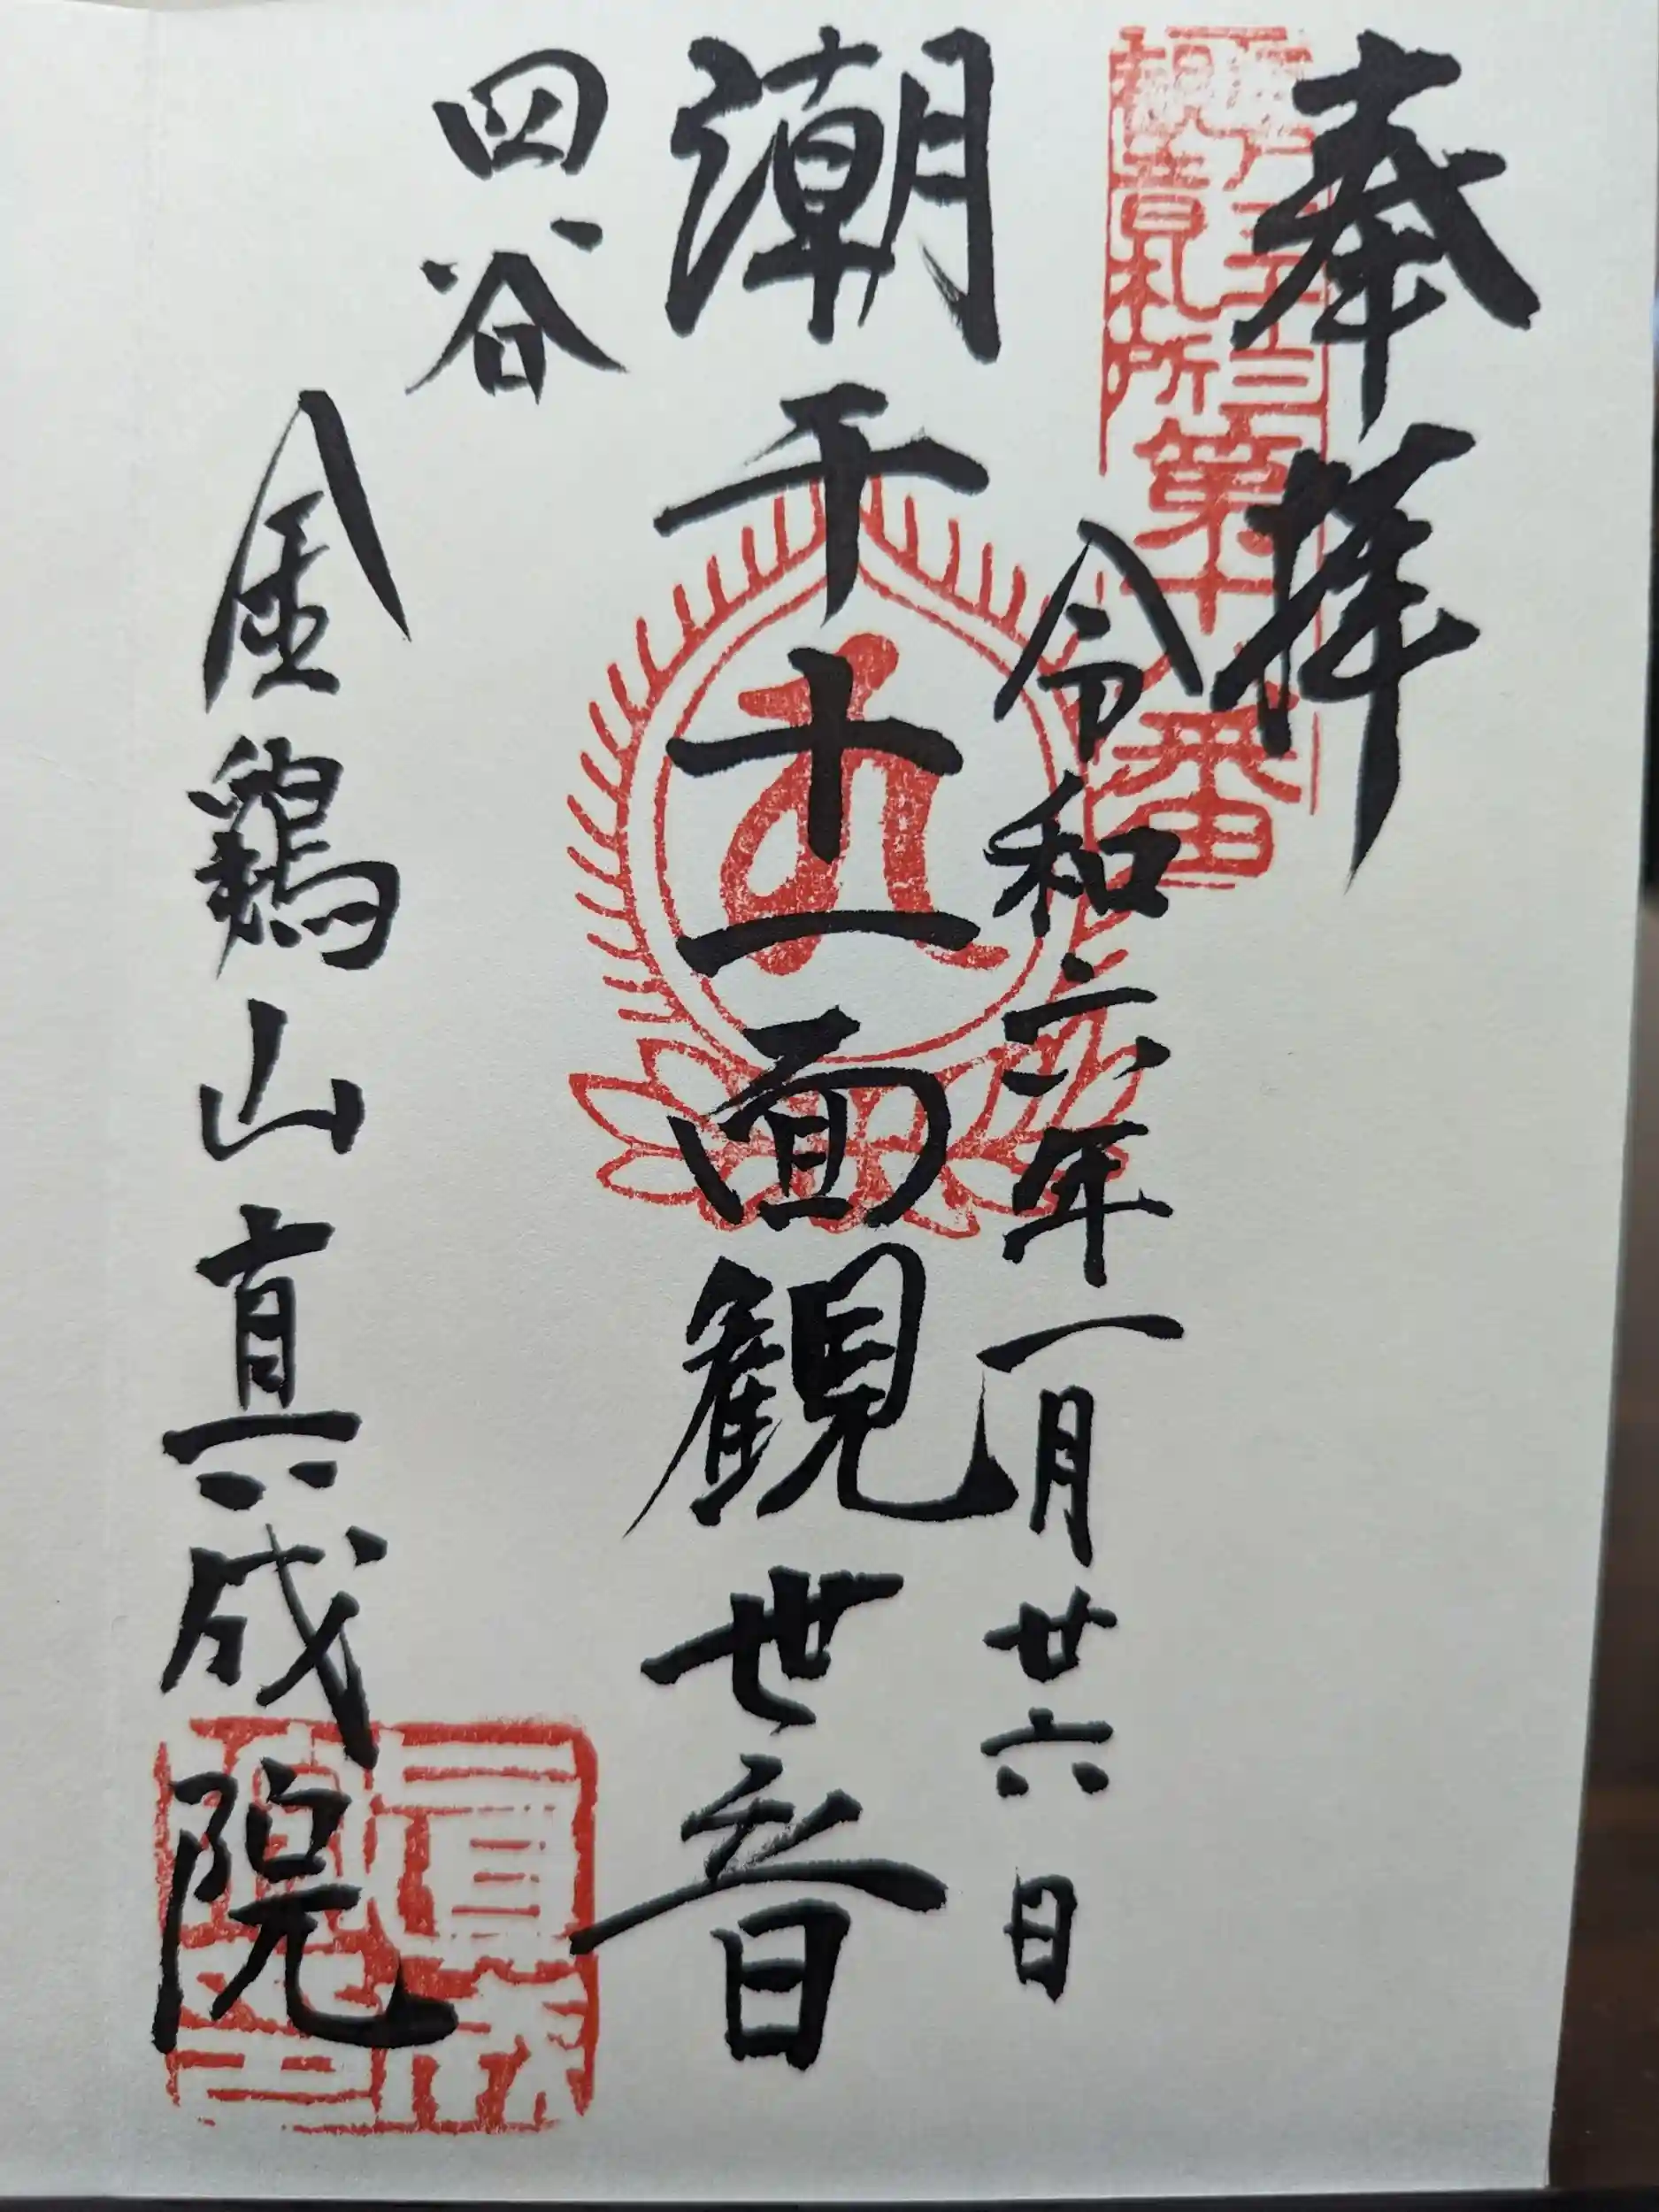 奉拝
江戸三十三観音札所第十八番
令和六年一月廿六日
潮干十一面観世音
四谷
金鶏山真成院